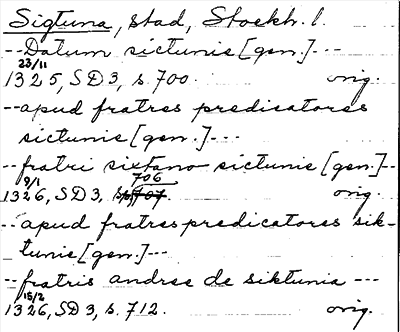 Sigtuna, stad, Stockh. l.
--Datum sictunie [gen.]---
23/11
1325, SD 3, s. 700. orig.
--apud fratres predicatores
sictunie [gen.]---
--fratri sixtano sictunie [gen.]--
9/1 706
1326, SD 3, s. 707. orig.
--apud fratres predicatores sik-
tunie [gen.]---
--fratris andree de siktunia ---
15/2
1326, SD 3, s. 712. orig.